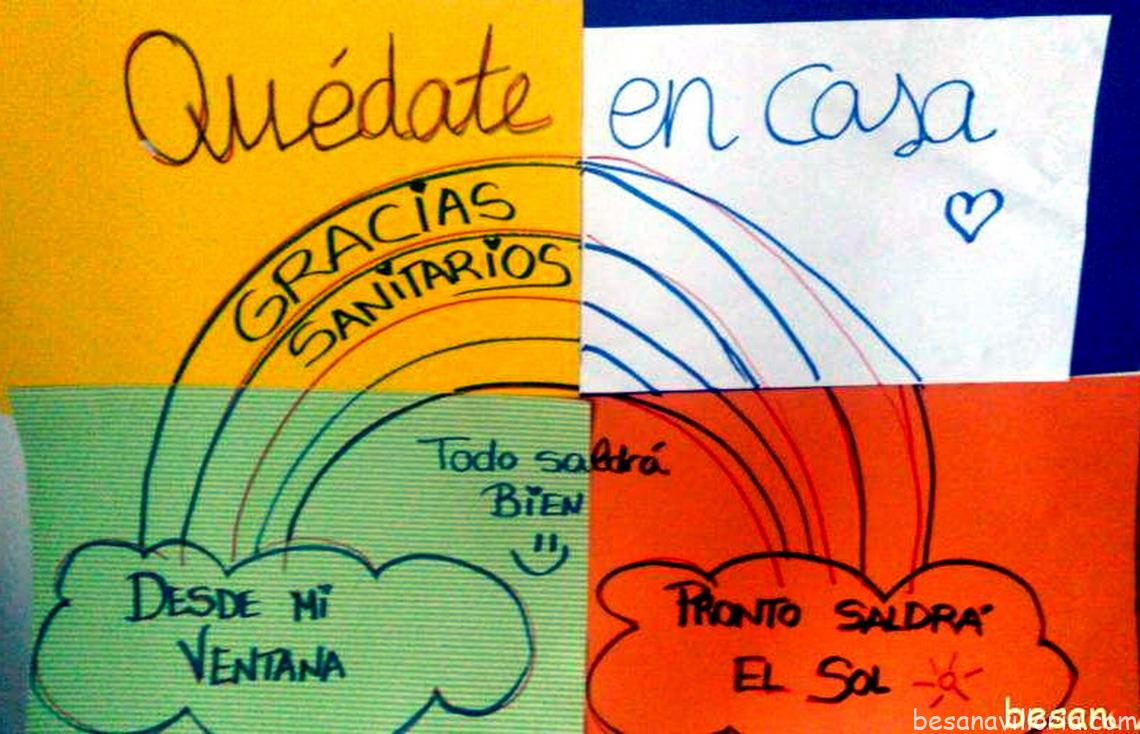 Quédate en casa
GRACIAS
SANITARIOS
Todo saldrá
BIEN
DESDE MI
VENTANA
PRONTO SALDRÁ
EL SOL
besan